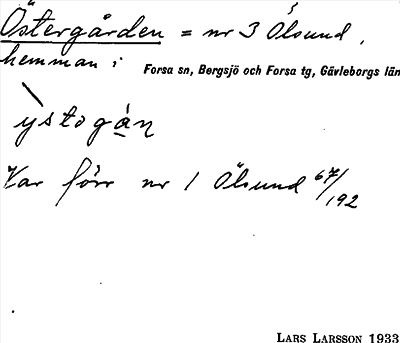 Östergården = nr 3 Ölsund,
hemman i Forsa sn, Bergsjö och Forsa tg, Gävleborgs län
ỳstogán
Var förr nr 1 Ölsund 67/192
LARS LARSSON 1933